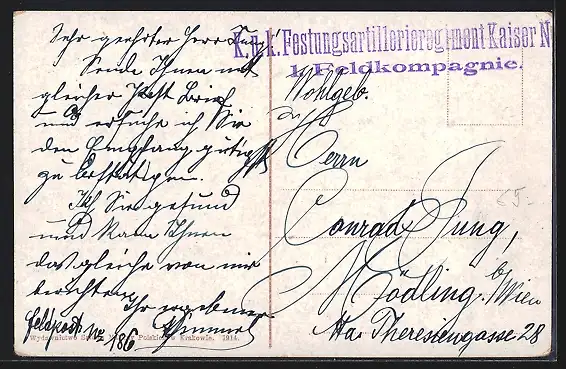 Sehr geehrter Herr Jung!
Sende Ihnen mit
gleicher Post Brief
und ersuche ich Sie
den Empfang gütigst
zu bestätigen.
Ich Sie gesund
und kann Ihnen
das gleiche von mir
berichten
Ihr ergebener
Feldpost Nr 186
Wydawnictwo Polskich w Krakowie. 1914.
K. u. k. Festungsartillerieregiment Kaiser N
1. Feldkompagnie.
Wohlgeb.
Herrn
Conrad Jung,
Mödling b/Wien
Ma. Theresiengasse 28
65-